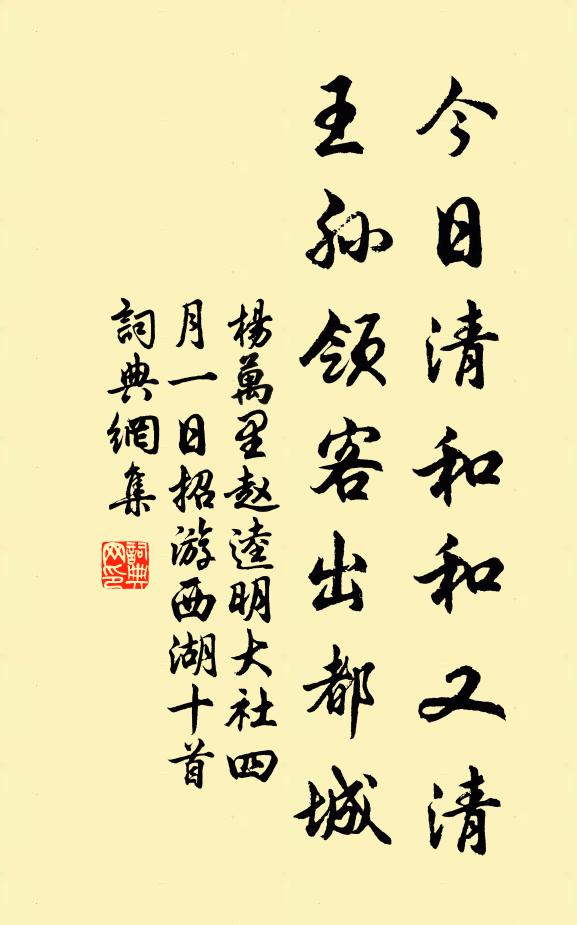 今日清和和又清
王孙领客出都城
楊萬里赵逵明大社四
月一日招游西湖十首
詞典網集
詞典
网印